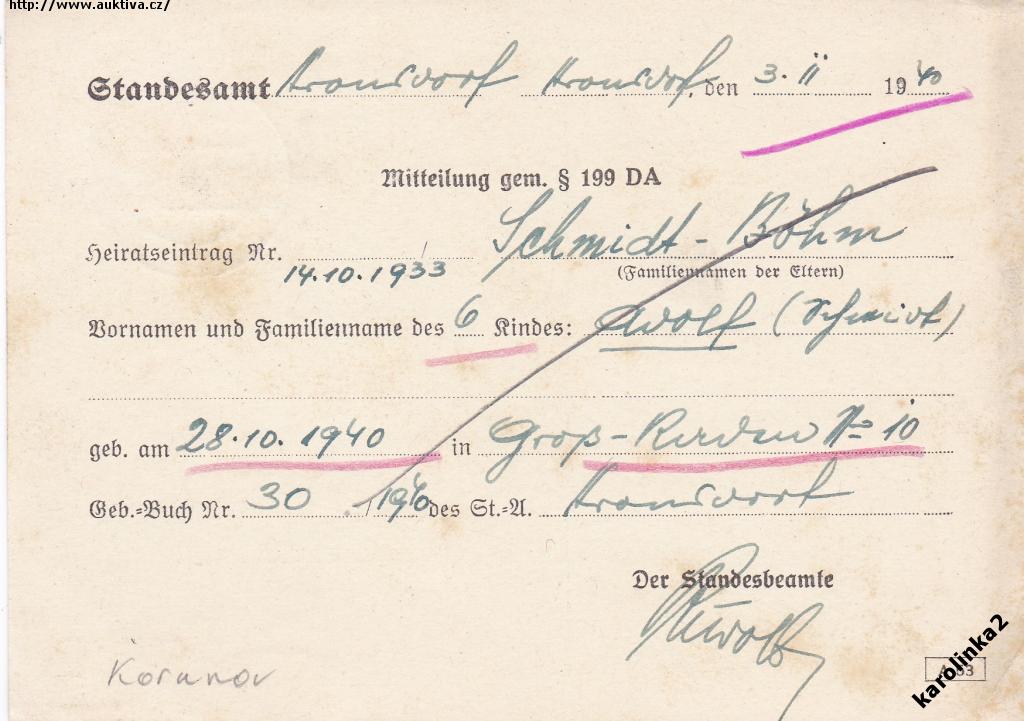 http://www.auktiva.cz/
Standesamt Kronsdorf Kronsdorf, den 3. II 1940
Mitteilung gem. § 199 DA
Schmidt - Böhm
Heiratseintrag Nr. /
14.10.1933 (Familiennamen der Eltern)
Vornamen und Familienname des 6 Kindes: Adolf (Schmidt)
geb. am 28.10.1940 in Groß- No 10
Geb.=Buch Nr. 30 / 1940 des St.=A. Kronsdorf
Der Standesbeamte
karolinka2